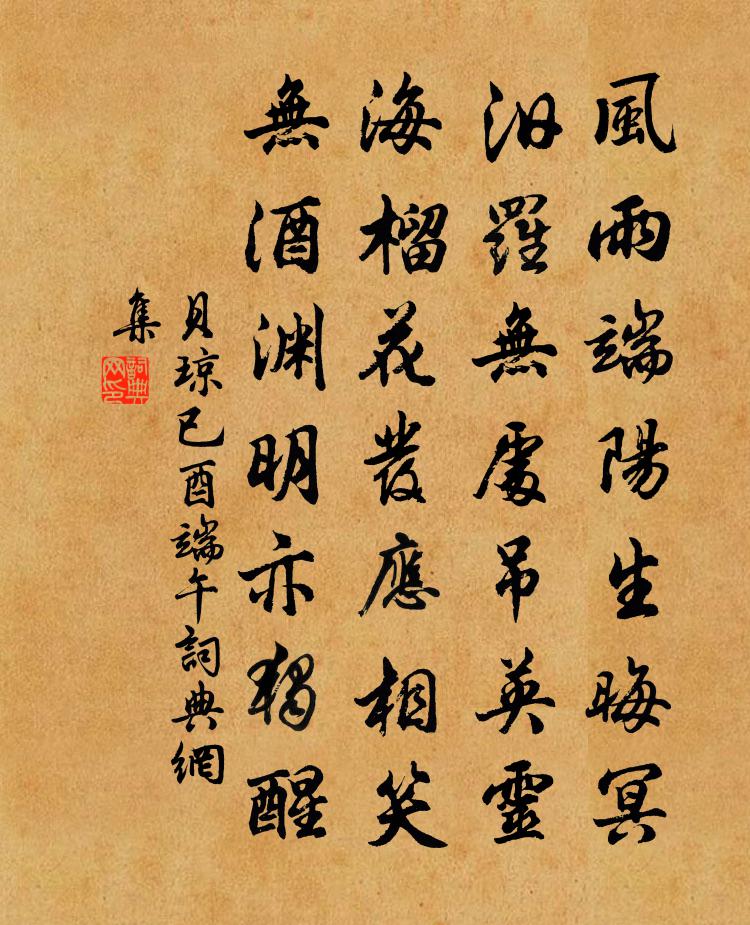 風雨端陽生晦冥
汨羅無處吊英靈
海榴花發應相笑
無酒渊明亦獨醒
貝瓊已酉端午詞典網
集
詞典网印